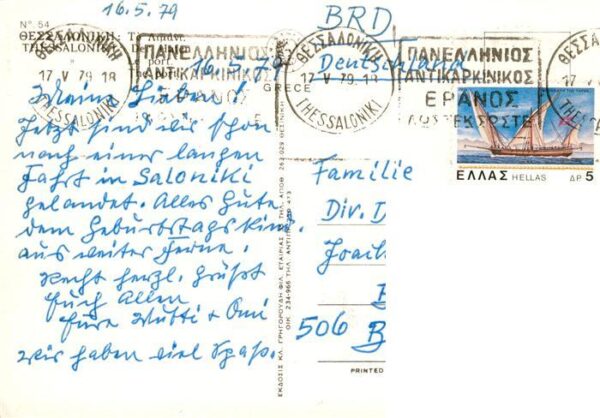 16.5.79
N° 54
ΘΕΣΣΑΛΟΝΙΚΗ: Το λιμάνι.
THESSALONIKI:
port.
GRECE
16.5.79
Meine Lieben!
Jetzt sind wir schon
nach einer langen
Fahrt in Saloniki
gelandet. Alles Gute
dem Geburtstagskind
aus weiter Ferne.
Recht herzl. grüßt
Euch Allen
Eure Mutti + Omi
Wir haben viel Spaß.
ΕΚΔΟΣΙΣ ΚΛ. ΓΡΗΓΟΡΟΥΔΗ ΦΙΛ. ΕΤΑΙΡΙΑΣ
ΟΙΚ. 234-966 ΤΗΛ.
ΘΕΣΣΑΛΟΝΙΚΗ
17·V·79.18
THESSALONIKI
ΠΑΝΕΛΛΗΝΙΟΣ
ΑΝΤΙΚΑΡΚΙΝΙΚΟΣ
ΕΡΑΝΟΣ
ΘΕΣΣΑΛΟΝΙΚΗ
17·V·79.18
THESSALONIKI
ΠΑΝΕΛΛΗΝΙΟΣ
ΑΝΤΙΚΑΡΚΙΝΙΚΟΣ
ΕΡΑΝΟΣ
BRD
Deutschland
ΕΛΛΑΣ HELLAS ΔΡ 5
Familie
Div. D
Joach
506 B
PRINTED